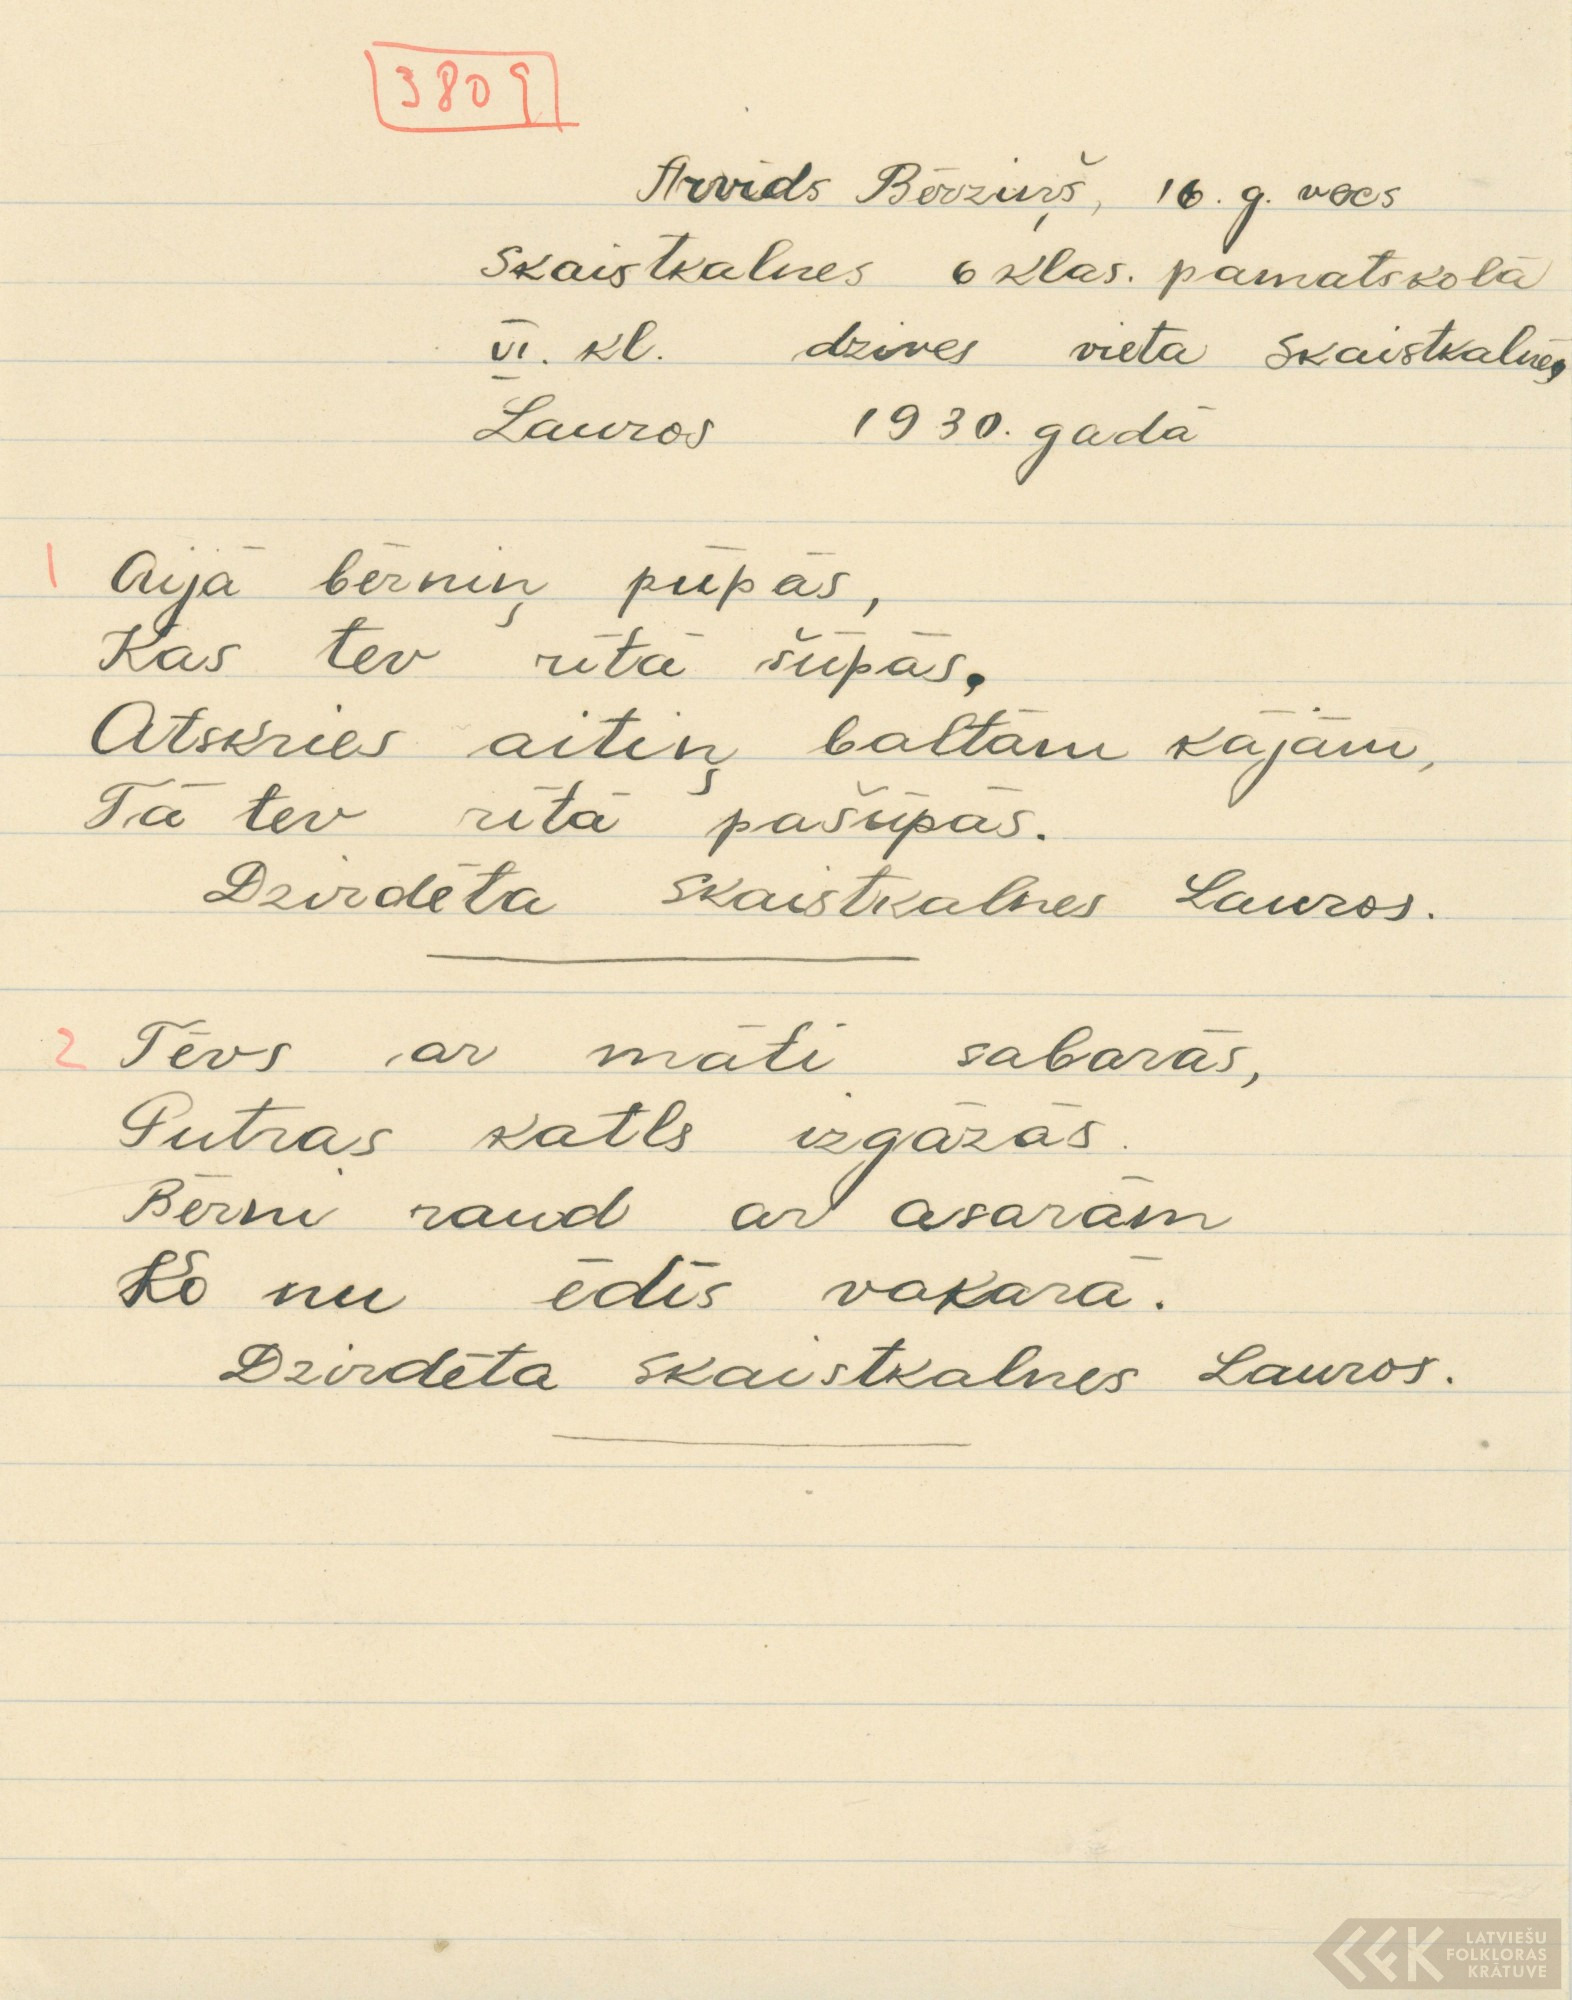 3809
Arvids Bērziņš, 16. g. vecs
Skaistkalnes 6 klas. pamatskolā
VI. kl. dzives vieta Skaistkalnes,
Lauros 1930. gadā
1 Aijā bērniņ pūpās,
Kas tev rītā šūpās,
Atskries aitiņ baltām kājām,
Tā tev rītā pašūpās.
Dzirdēta Skaistkalnes Lauros.
2 Tēvs ar māti sabarās,
Putras katls izgāzās.
Bērni raud ar asarām
Ko nu ēdīs vakarā.
Dzirdēta Skaistkalnes Lauros.
LATVIEŠU
FOLKLORAS
KRĀTUVE